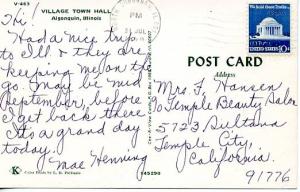 V-463
VILLAGE TOWN HALL
Algonquin, Illinois
PM
JUL
10¢
Hi!
Had a nice trip
to Ill & they are
keeping me on the
go. May be mid
September, before
I get back there
It's a grand day
today.
Mae Henning
POST CARD
Address
Mrs. F. Hansen
% Temple Beauty Salon
5723 Sultana
Temple City,
California.
91776
K
145290